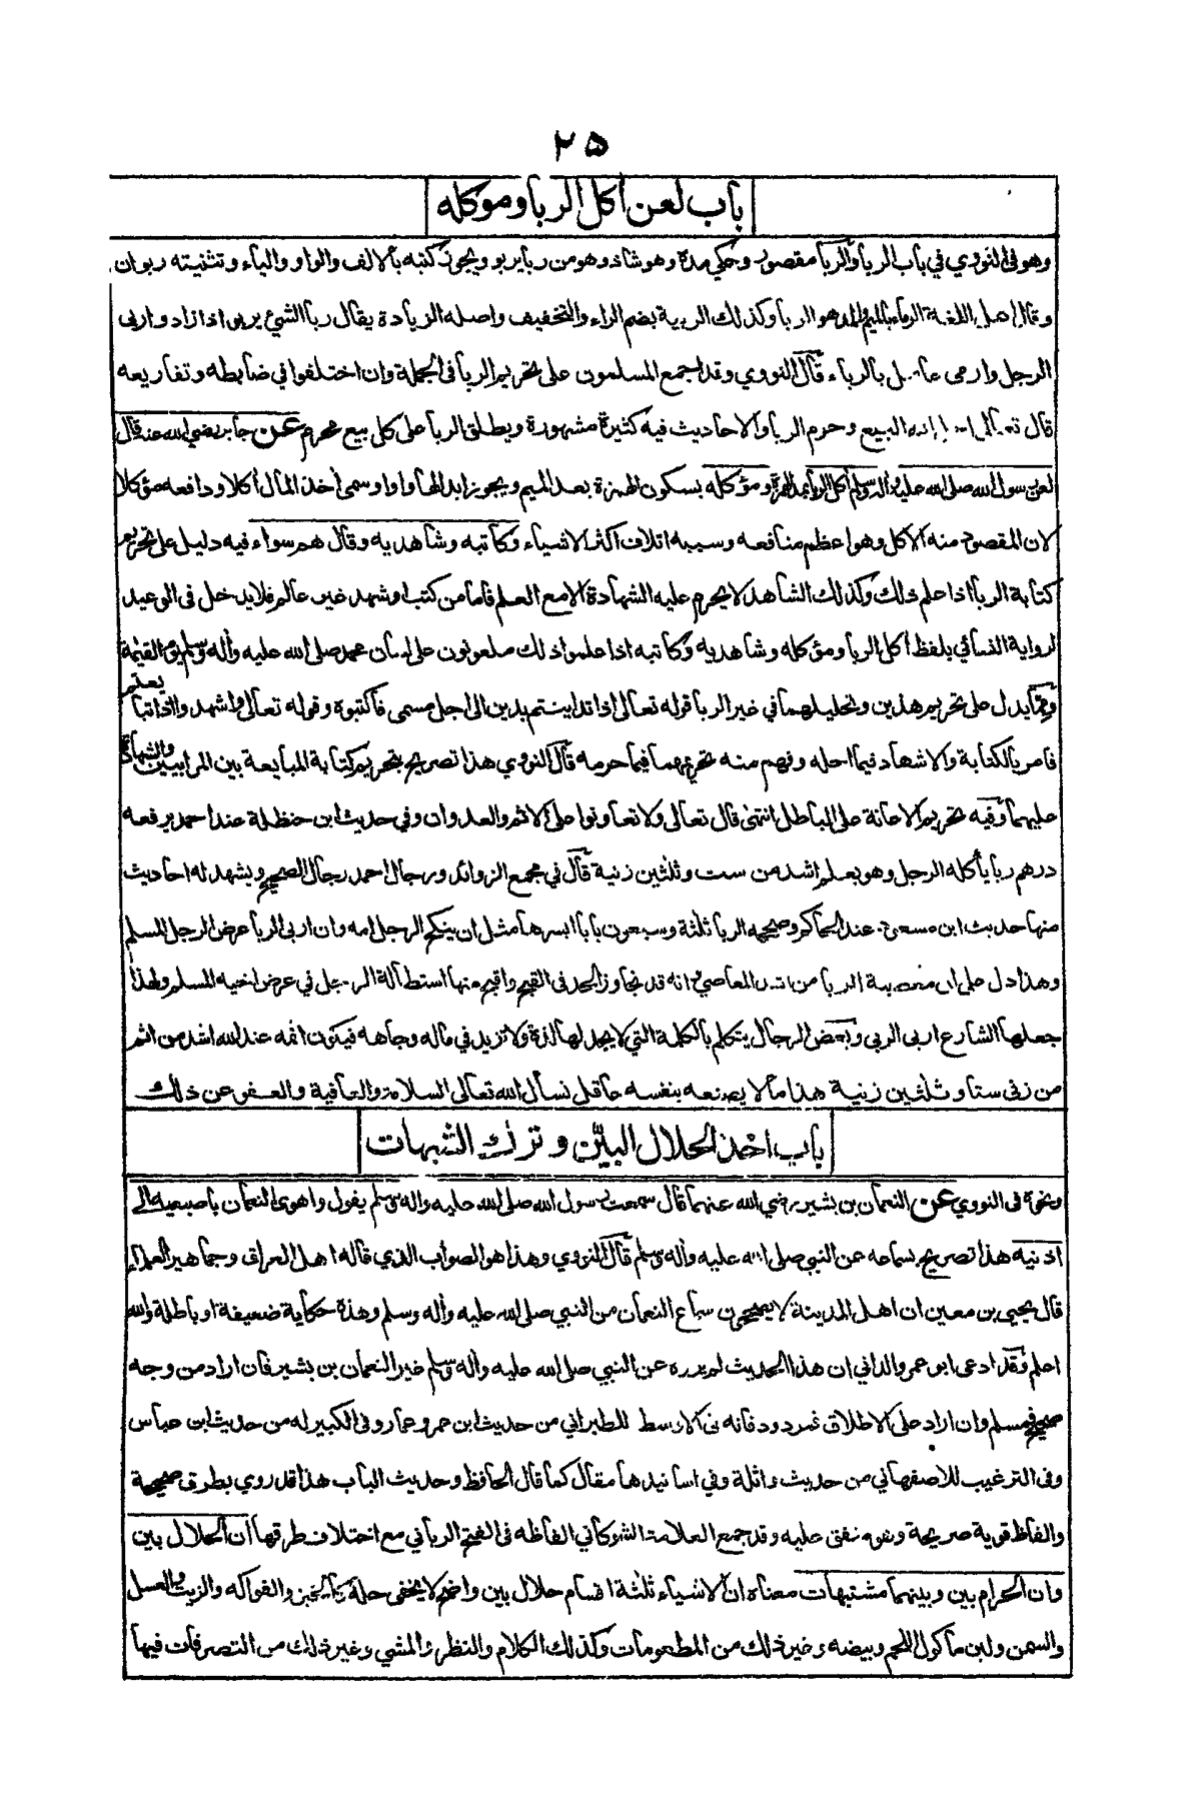 ٢٥
باب لعن آكل الربا وموكله
وهو في النووي في باب الربا والربا مقصور وحكي مده وهو شاذ وهو من ربا يربو ويجوز كتبه بالالف والواو والياء وتثنيته ربوان
وقال اهل اللغة الرماء بالميم والمد هو الربا وكذلك الربية بضم الراء والتخفيف واصله الزيادة يقال ربا الشيء يربو اذا زاد واربى
الرجل وارمى عامل بالرباء قال النووي وقد اجمع المسلمون على تحريم الربا في الجملة وان اختلفوا في ضابطه وتفاريعه
قال تعالى احل الله البيع وحرم الربا والاحاديث فيه كثيرة مشهورة ويطلق الربا على كل بيع محرم عن جابر رضي الله عنه قال
لعن رسول الله صلى الله عليه وآله وسلم آكل الربا بمد الهمزة ومؤكله بسكون الهمزة بعد الميم ويجوز ابدالها واوا وسمى اخذ المال آكلا ودافعه مؤكلا
لان المقصود منه الاكل وهو اعظم منافعه وسببه اتلاف اكثر الاشياء وكاتبه وشاهديه وقال هم سواء فيه دليل على تحريم
كتابة الربا اذا علم ذلك وكذلك الشاهد لا يحرم عليه الشهادة الا مع العلم فاما من كتب او شهد غير عالم فلا يدخل في الوعيد
لرواية النسائي بلفظ آكل الربا ومؤكله وشاهديه وكاتبه اذا علموا ذلك ملعونون على لسان محمد صلى الله عليه وآله وسلم يوم القيمة
ومما يدل على تحريم هذين وتحليلهما في غير الربا قوله تعالى اذا تداينتم بدين الى اجل مسمى فاكتبوه وقوله تعالى واشهدوا اذا تبايعتم
فامر بالكتابة والاشهاد فيما احله وفهم منه تحريمهما فيما حرمه قال النووي هذا تصريح بتحريم كتابة المبايعة بين المرابيين والشهادة
عليهما وفيه تحريم الاعانة على الباطل انتهى قال تعالى ولا تعاونوا على الاثم والعدوان وفي حديث ابن حنظلة عند احمد يرفعه
درهم ربا ياكله الرجل وهو يعلم اشد من ست وثلثين زنية قال في مجمع الزوائد ورجال احمد رجال الصحيح ويشهد له احاديث
منها حديث ابن مسعود عند الحاكر وصححه الربا ثلثة وسبعون بابا ايسرها مثل ان ينكح الرجل امه وان اربى الربا عرض الرجل المسلم
وهذا دل على ان معصية الربا من اشد المعاصي لانه قد تجاوز الحد في القبح واقبح منها استطالة الرجل في عرض اخيه المسلم ولهذا
جعلها الشارع اربى الربى وبعض الرجال يتكلم بالكلمة التي لا يجد لها لذة ولا تزيد في ماله وجاهه فيكون اثمه عند الله اشد من اثم
من زنى ستا وثلثين زنية هذا ما لا يصنعه بنفسه عاقل نسأل الله تعالى السلامة والعافية والعفو عن ذلك
باب اخذ الحلال البيّن وترك الشبهات
ونحوه في النووي عن النعمان بن بشير رضي الله عنهما قال سمعت رسول الله صلى الله عليه وآله وسلم يقول واهوى النعمان باصبعيه الى
اذنيه هذا تصريح بسماعه عن النبي صلى الله عليه وآله وسلم قال النووي وهذا هو الصواب الذي قاله اهل العراق وجماهير العلماء
قال يحيى بن معين ان اهل المدينة لا يصححون سماع النعمان من النبي صلى الله عليه وآله وسلم وهذه حكاية ضعيفة او باطلة والله
اعلم وقد ادعى ابو عمرو الداني ان هذا الحديث لم يروه عن النبي صلى الله عليه وآله وسلم غير النعمان بن بشير فان اراد من وجه
صحيح فمسلم وان اراد على الاطلاق فمردود فانه في الاوسط للطبراني من حديث ابن عمرو عمار وفي الكبير له من حديث ابن عباس
وفي الترغيب للاصفهاني من حديث واثلة وفي اسانيدها مقال كما قال الحافظ وحديث الباب هذا قد روي بطرق صحيحة
والفاظ قوية صريحة وهو متفق عليه وقد جمع العلامة الشوكاني الفاظه في الفتح الرباني مع اختلاف طرقها ان الحلال بين
وان الحرام بين وبينهما مشتبهات معناه ان الاشياء ثلثة اقسام حلال بين واضح لا يخفى حله كالخبز والفواكه والزيت والعسل
والسمن ولبن ماكول اللحم وبيضه وغير ذلك من المطعومات وكذلك الكلام والنظر والمشي وغير ذلك من التصرفات فيها